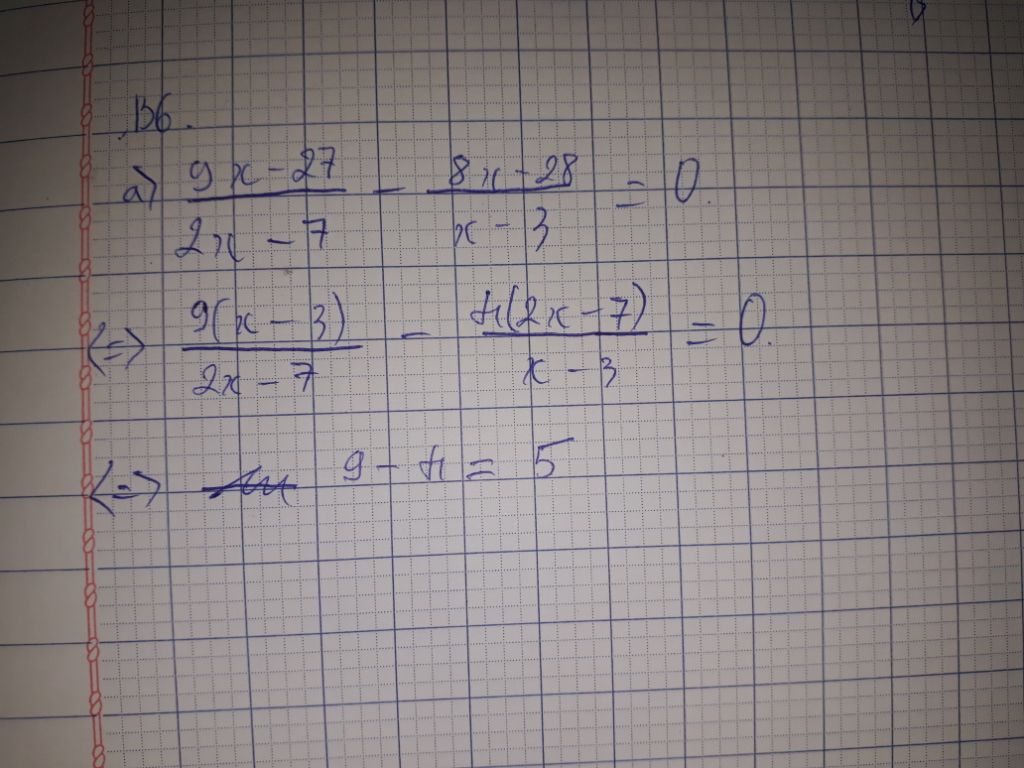 B6.
a) \frac{9x-27}{2x-7} - \frac{8x-28}{x-3} = 0.
<=> \frac{9(x-3)}{2x-7} - \frac{4(2x-7)}{x-3} = 0.
<=> 9 - 4 = 5